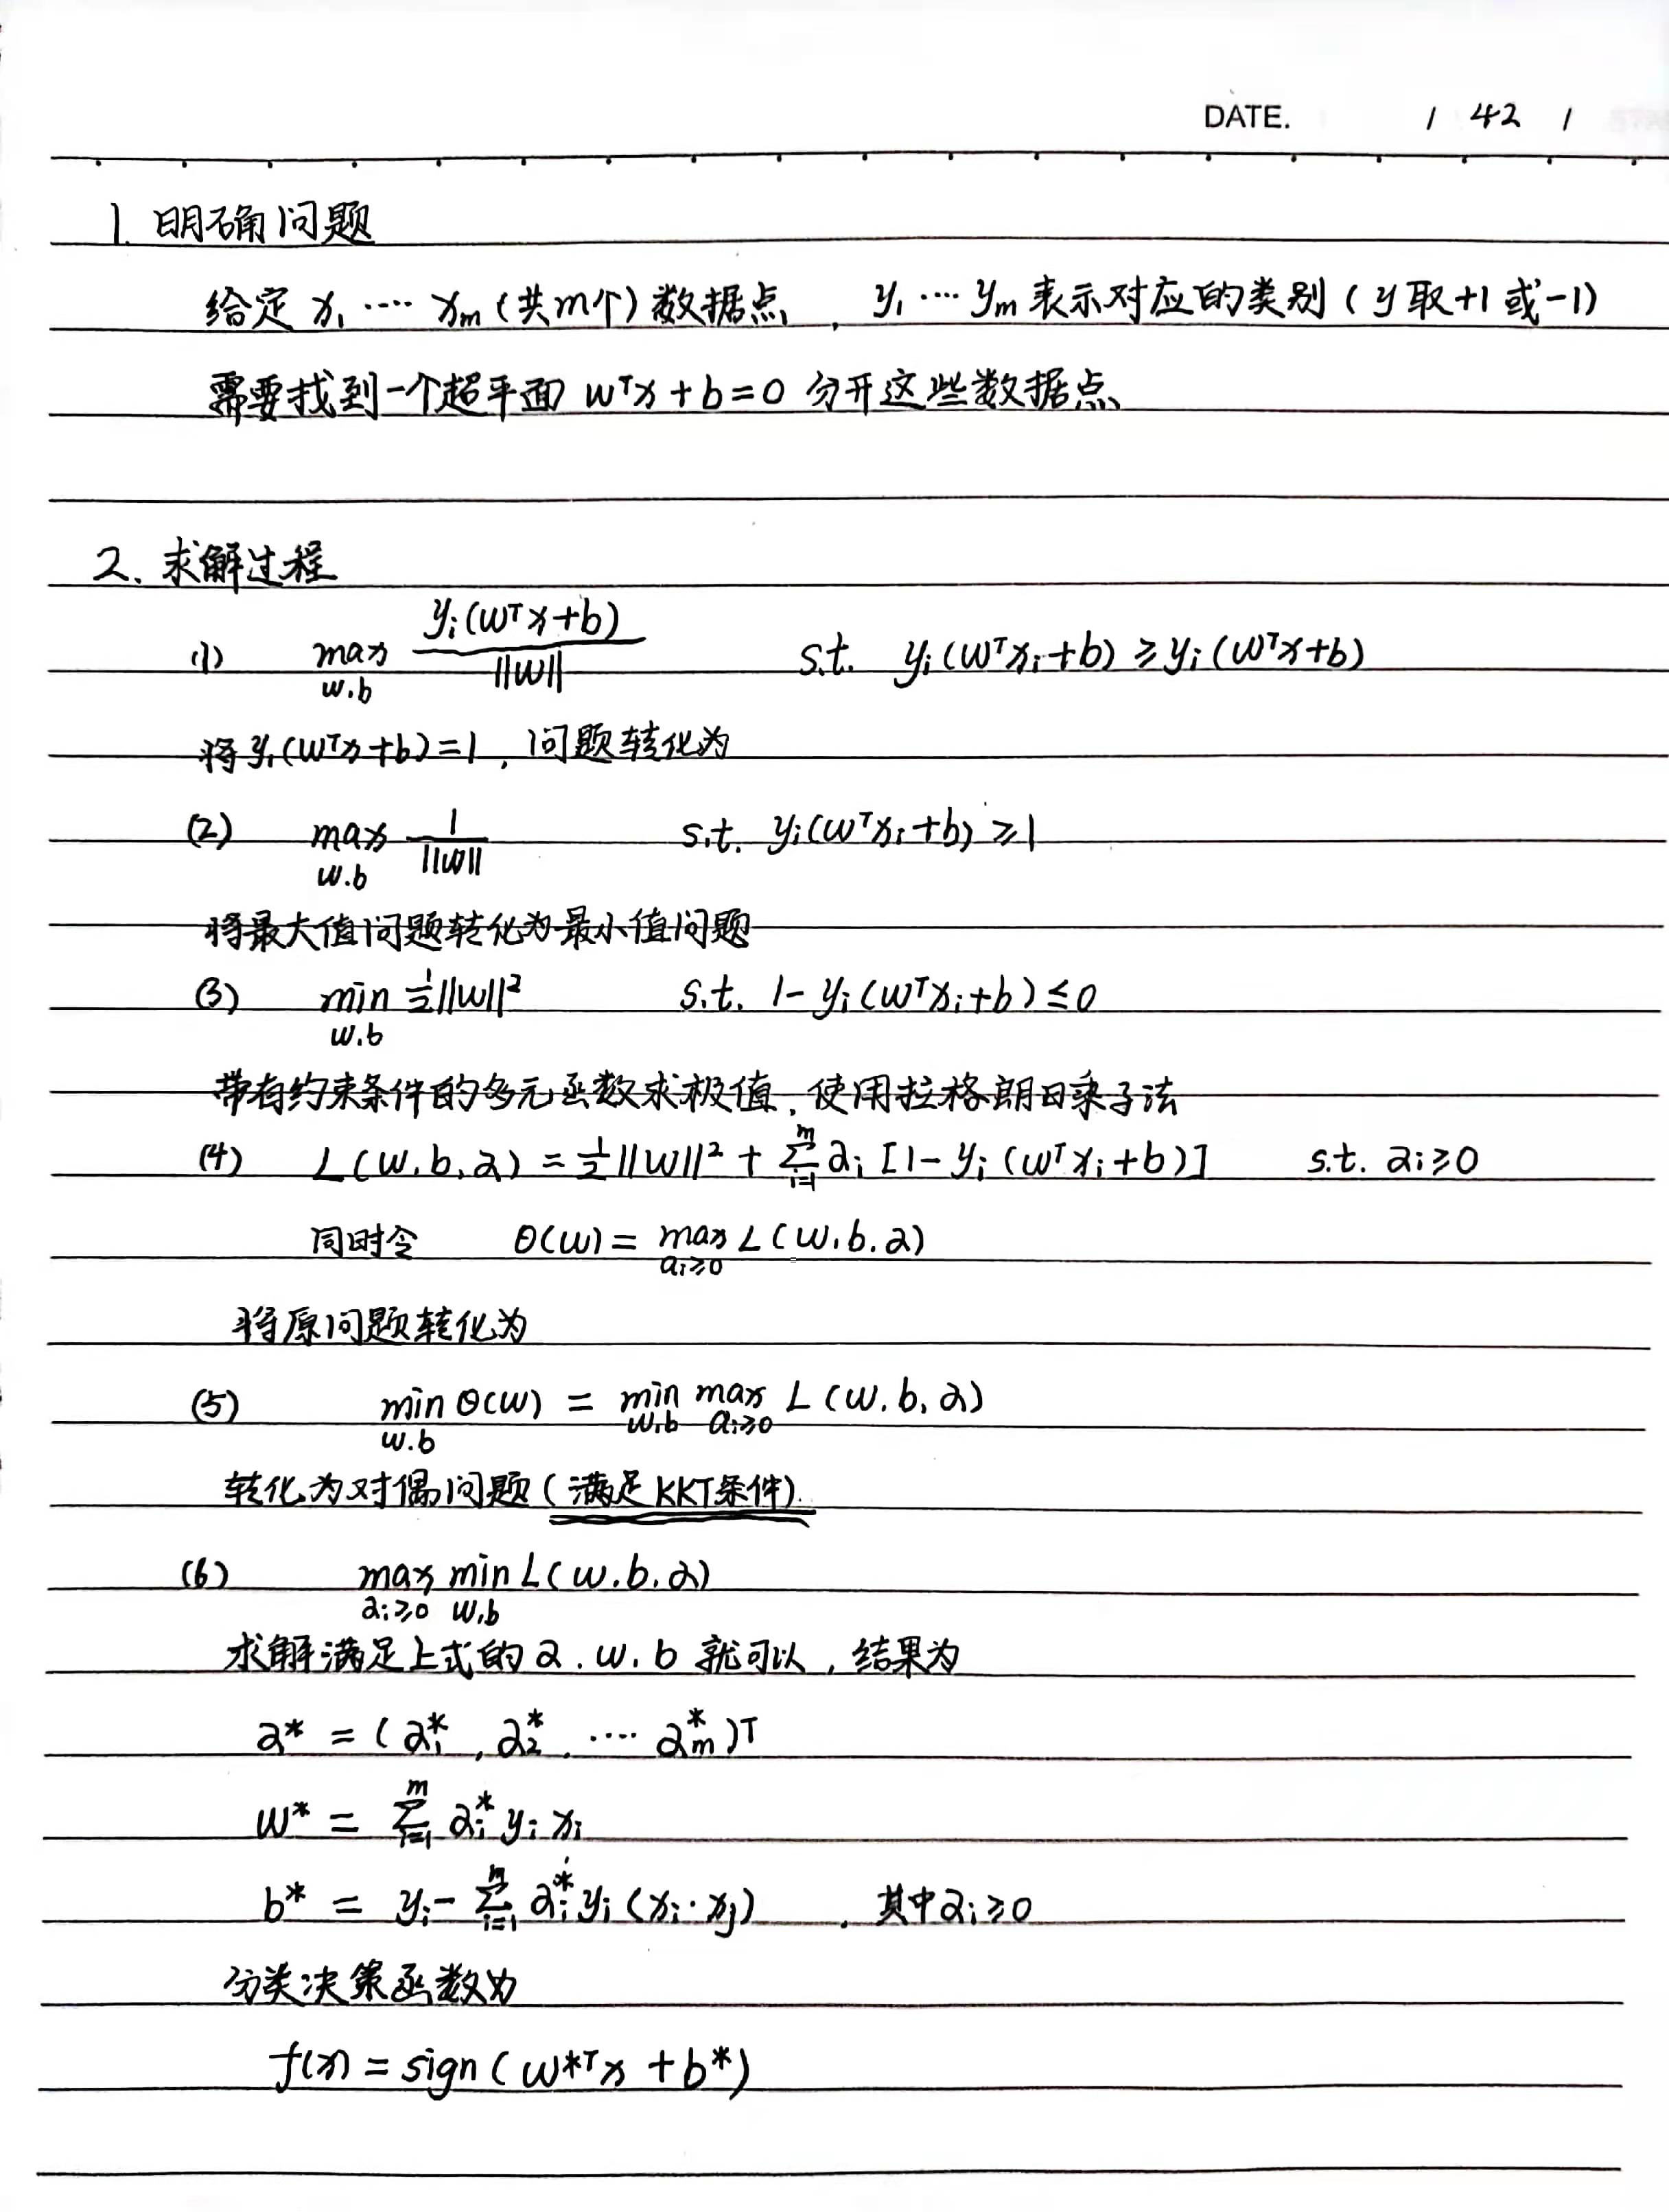 DATE. / 42 /
1. 明确问题
给定 x₁ ···· xₘ (共m个) 数据点, y₁ ···· yₘ 表示对应的类别 (y取+1或-1)
需要找到一个超平面 wᵀx+b=0 分开这些数据点
2. 求解过程
(1) max_{w.b} yᵢ(wᵀx+b)/||w|| s.t. yᵢ(wᵀxᵢ+b) ≥ yᵢ(wᵀx+b)
将 yᵢ(wᵀx+b)=1, 问题转化为
(2) max_{w.b} 1/||w|| s.t. yᵢ(wᵀxᵢ+b) ≥1
将最大值问题转化为最小值问题
(3) min_{w.b} ½||w||² s.t. 1-yᵢ(wᵀxᵢ+b) ≤0
带有约束条件的多元函数求极值, 使用拉格朗日乘子法
(4) L(w.b.α) = ½||w||² + ∑_{i=1}^{m} αᵢ [1-yᵢ(wᵀxᵢ+b)] s.t. αᵢ≥0
同时令 θ(w) = max_{αᵢ≥0} L(w.b.α)
将原问题转化为
(5) min_{w.b} θ(w) = min_{w.b} max_{αᵢ≥0} L(w.b.α)
转化为对偶问题 (满足KKT条件).
(6) max_{αᵢ≥0} min_{w.b} L(w.b.α)
求解满足上式的 α.w.b 就可以, 结果为
α* = (α₁*, α₂*, ···· αₘ*)ᵀ
w* = ∑_{i=1}^{m} αᵢ* yᵢ xᵢ
b* = yᵢ - ∑_{i=1}^{m} αᵢ* yᵢ (xᵢ·xⱼ) , 其中αᵢ≥0
分类决策函数为
f(x) = sign(w*ᵀx + b*)